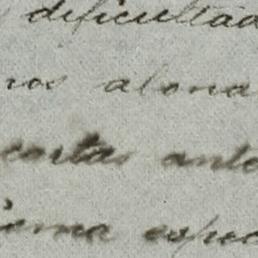 dificultad
ros alona
cartas ante
isma espec